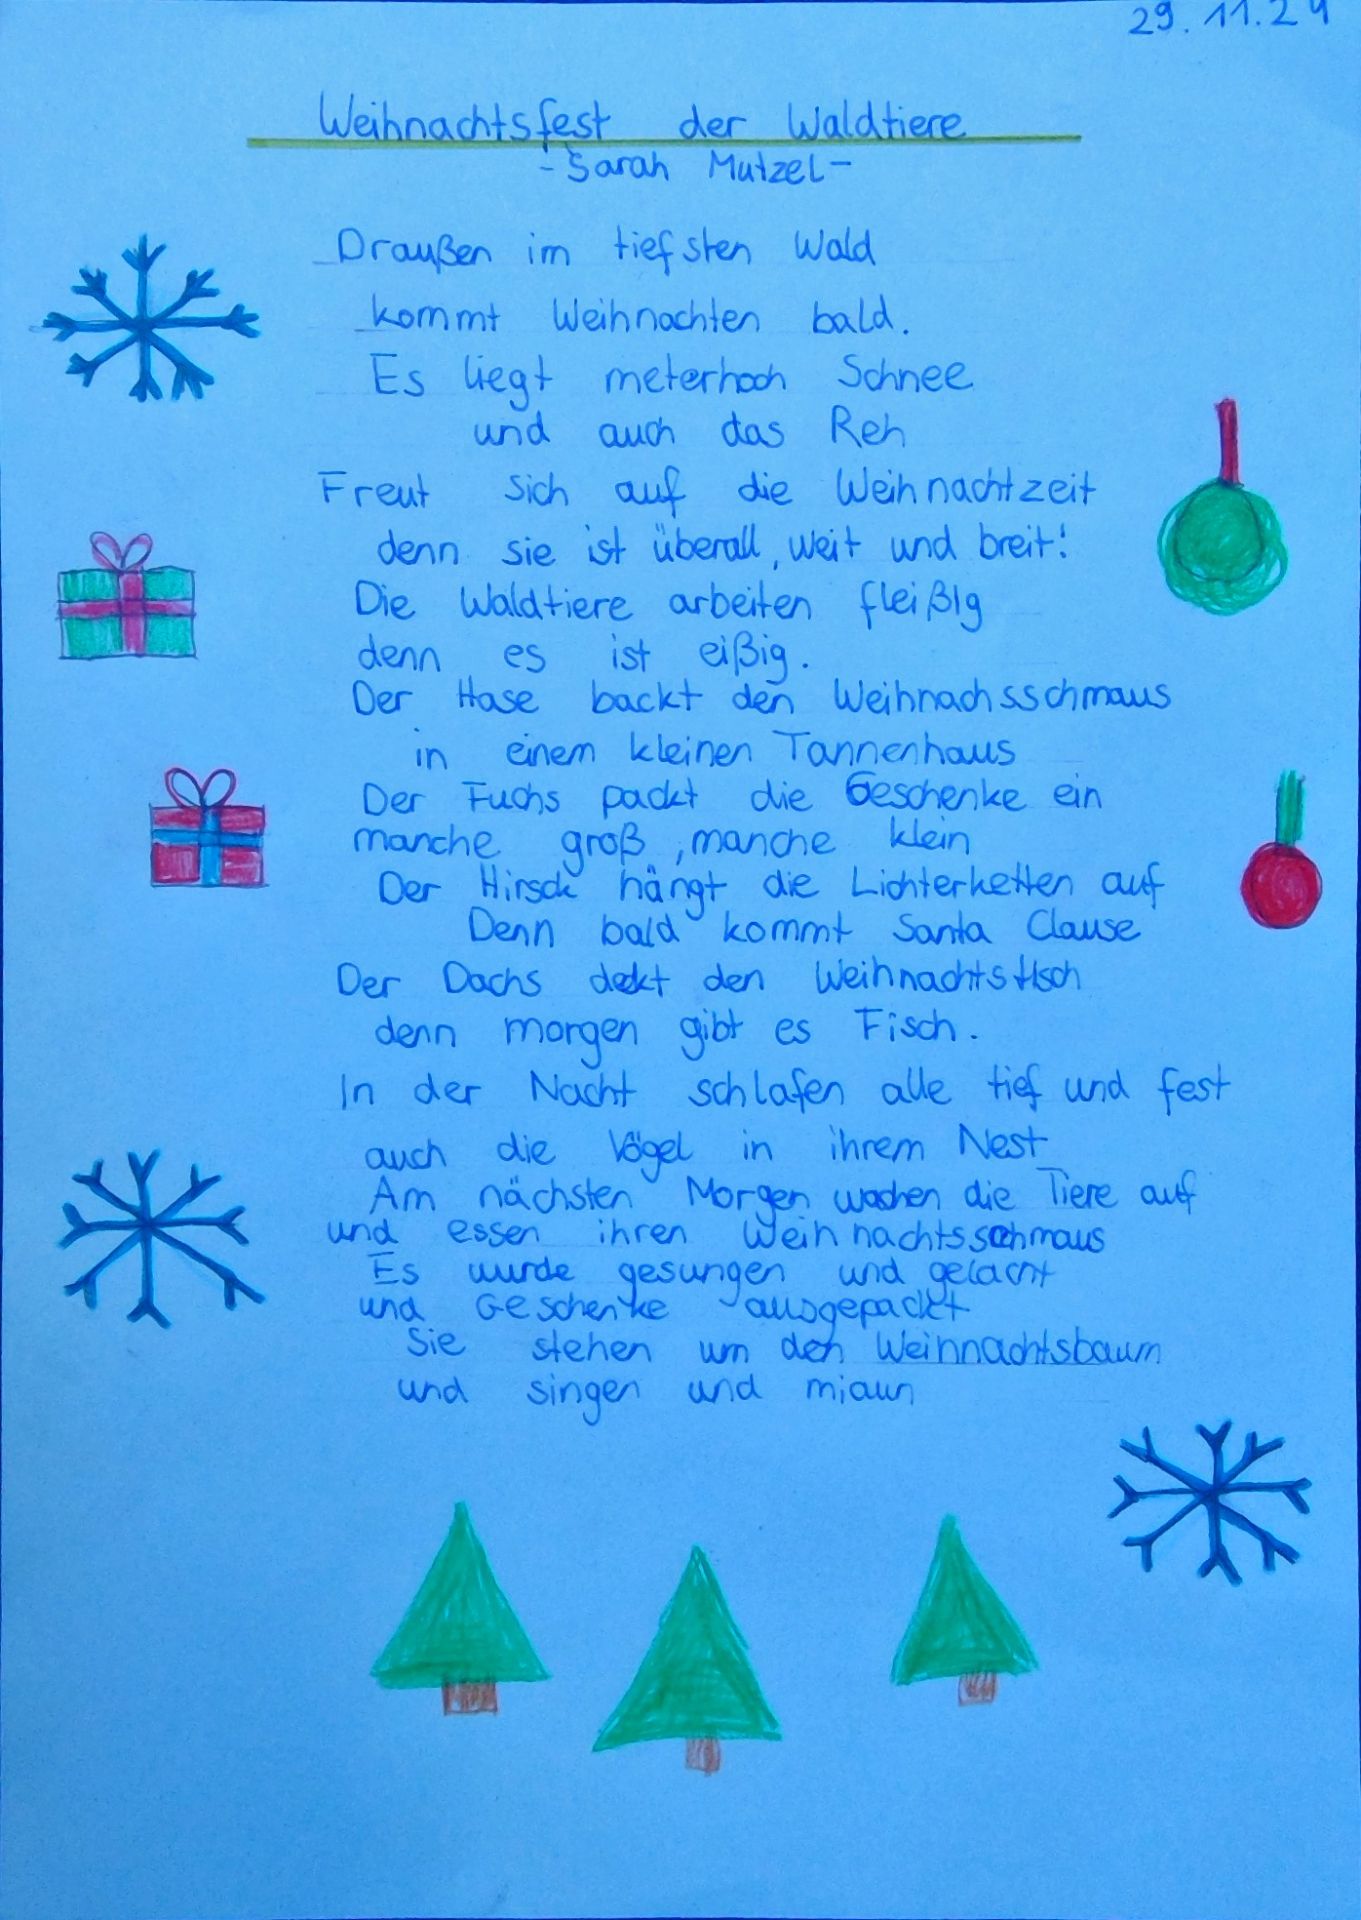 29.11.24
Weihnachtsfest der Waldtiere
-Sarah Mutzel-
Draußen im tiefsten Wald
kommt Weihnachten bald.
Es liegt meterhoch Schnee
und auch das Reh
Freut sich auf die Weihnachtzeit
denn sie ist überall, weit und breit!
Die Waldtiere arbeiten fleißig
denn es ist eißig.
Der Hase backt den Weihnachsschmaus
in einem kleinen Tannenhaus
Der Fuchs packt die Geschenke ein
manche groß, manche klein
Der Hirsch hängt die Lichterketten auf
Denn bald kommt Santa Clause
Der Dachs deckt den Weihnachtstisch
denn morgen gibt es Fisch.
In der Nacht schlafen alle tief und fest
auch die Vögel in ihrem Nest
Am nächsten Morgen wachen die Tiere auf
und essen ihren Weihnachtsschmaus
Es wurde gesungen und gelacht
und Geschenke ausgepackt
Sie stehen um den Weihnachtsbaum
und singen und miaun